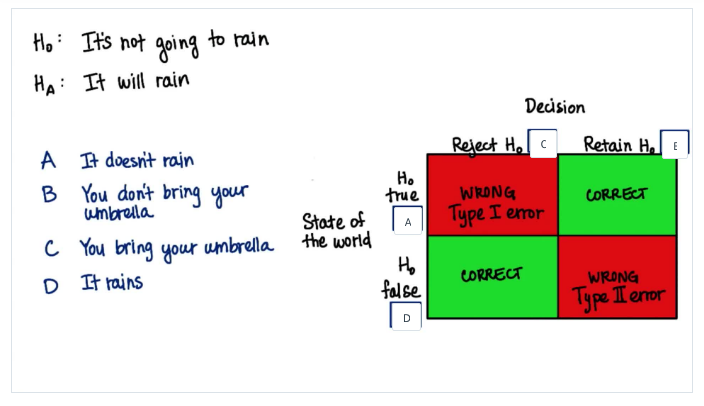 H₀: It's not going to rain
Hₐ: It will rain
A It doesn't rain
B You don't bring your
umbrella
C You bring your umbrella
D It rains
Decision
Reject H₀ C
Retain H₀ E
State of
the world
H₀
true
A
WRONG
Type I error
CORRECT
H₀
false
D
CORRECT
WRONG
Type II error